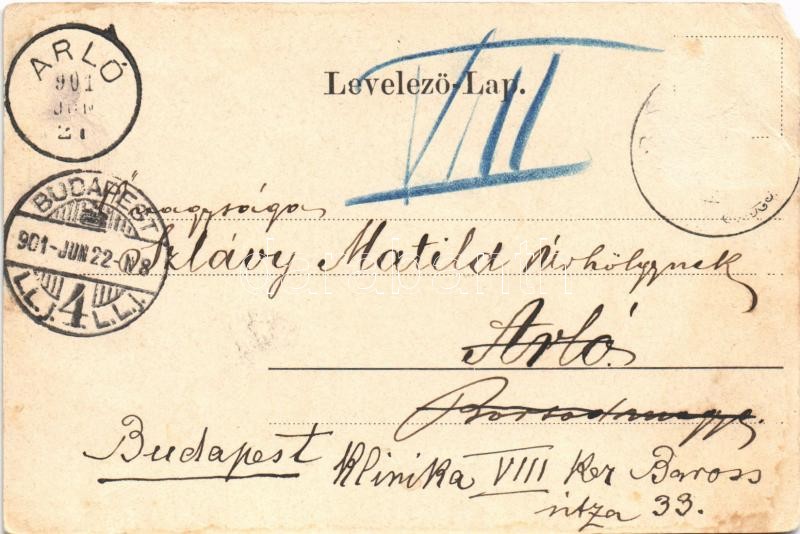 ARLÓ
901
JUN
21
VIII
Levelező-Lap.
BUDAPEST
901-JUN 22-N8
I.L.j. 4 L.L.j.
Őnagysága
Szlávy Matild Úrhölgynek
Arló.
Borsodmegye.
Budapest Klinika VIII Ker Baross
utza 33.